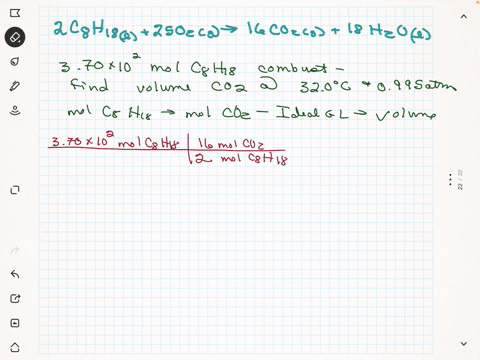 2C₈H₁₈(l) + 25O₂(g) → 16CO₂(g) + 18H₂O(l)
3.70 × 10² mol C₈H₁₈ combust –
find volume CO₂ @ 32.0°C + 0.995atm
mol C₈H₁₈ → mol CO₂ – Ideal GL → volume
3.70 × 10² mol C₈H₁₈ | 16 mol CO₂
2 mol C₈H₁₈
22 / 22